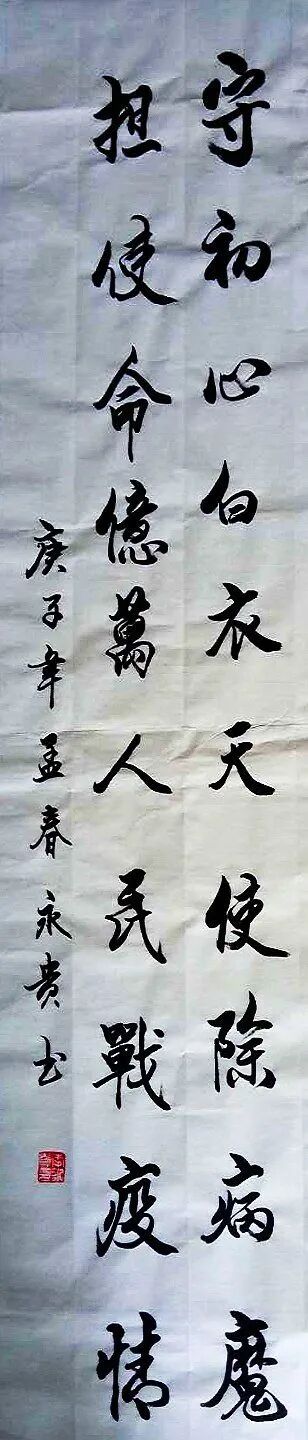 守初心白衣天使除病魔
担使命億萬人民戰疫情
庚子年孟春永贵书